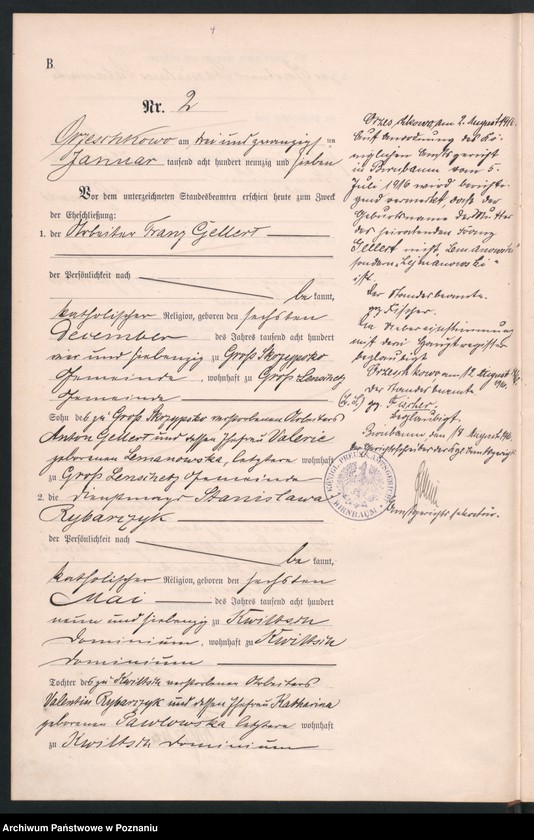 B.
Nr. 2
Orzeschkowo am drei und zwanzigsten
Januar tausend acht hundert neunzig und sieben
Vor dem unterzeichneten Standesbeamten erschien heute zum Zweck
der Eheschließung:
1. der Arbeiter Franz Gellert
der Persönlichkeit nach
be kannt,
katholischer Religion, geboren den sechsten
December des Jahres tausend acht hundert
vier und siebenzig zu Groß Skrzypsko
Gemeinde, wohnhaft zu Groß Lenschetz
Gemeinde
Sohn des zu Groß Skrzypsko verstorbenen Arbeiters
Anton Gellert und dessen Ehefrau Valerie
geborenen Lemanowska, letztere wohnhaft
zu Groß Lenschetz Gemeinde
2. die Dienstmagd Stanislawa
Rybarczyk
der Persönlichkeit nach
be kannt,
katholischer Religion, geboren den sechsten
Mai des Jahres tausend acht hundert
neun und siebenzig zu Kwiltsch
Dominium, wohnhaft zu Kwiltsch
Dominium
Tochter des zu Kwiltsch verstorbenen Arbeiters
Valentin Rybarczyk und dessen Ehefrau Katharina
geborenen Pawlowska letztere wohnhaft
zu Kwiltsch Dominium
Orzeschkowo, am 2. August 1916.
Auf Anordnung des Kö-
niglichen Amtsgericht
in Birnbaum vom 5.
Juli 1916 wird berichti-
gend vermerkt, dass der
Geburtsname der Mutter
des heiratenden Franz
Gellert nicht "Lemanowski"
sondern "Lejmanowski"
ist.
Der Standesbeamte.
gz. Fischer.
In Uebereinstimmung
mit dem Hauptregister
beglaubigt
Orzeschkowo am 12. August 1916.
Der Standesbeamte
(L.S.) gz. Fischer.
Beglaubigt.
Birnbaum, den 18. August 1916.
Der Gerichtsschreiber des Kgl. Amtsgericht
Amtsgerichtssekretär.
KÖNIGL. PREUSS. AMTSGERICHT
BIRNBAUM
Archiwum Państwowe w Poznaniu